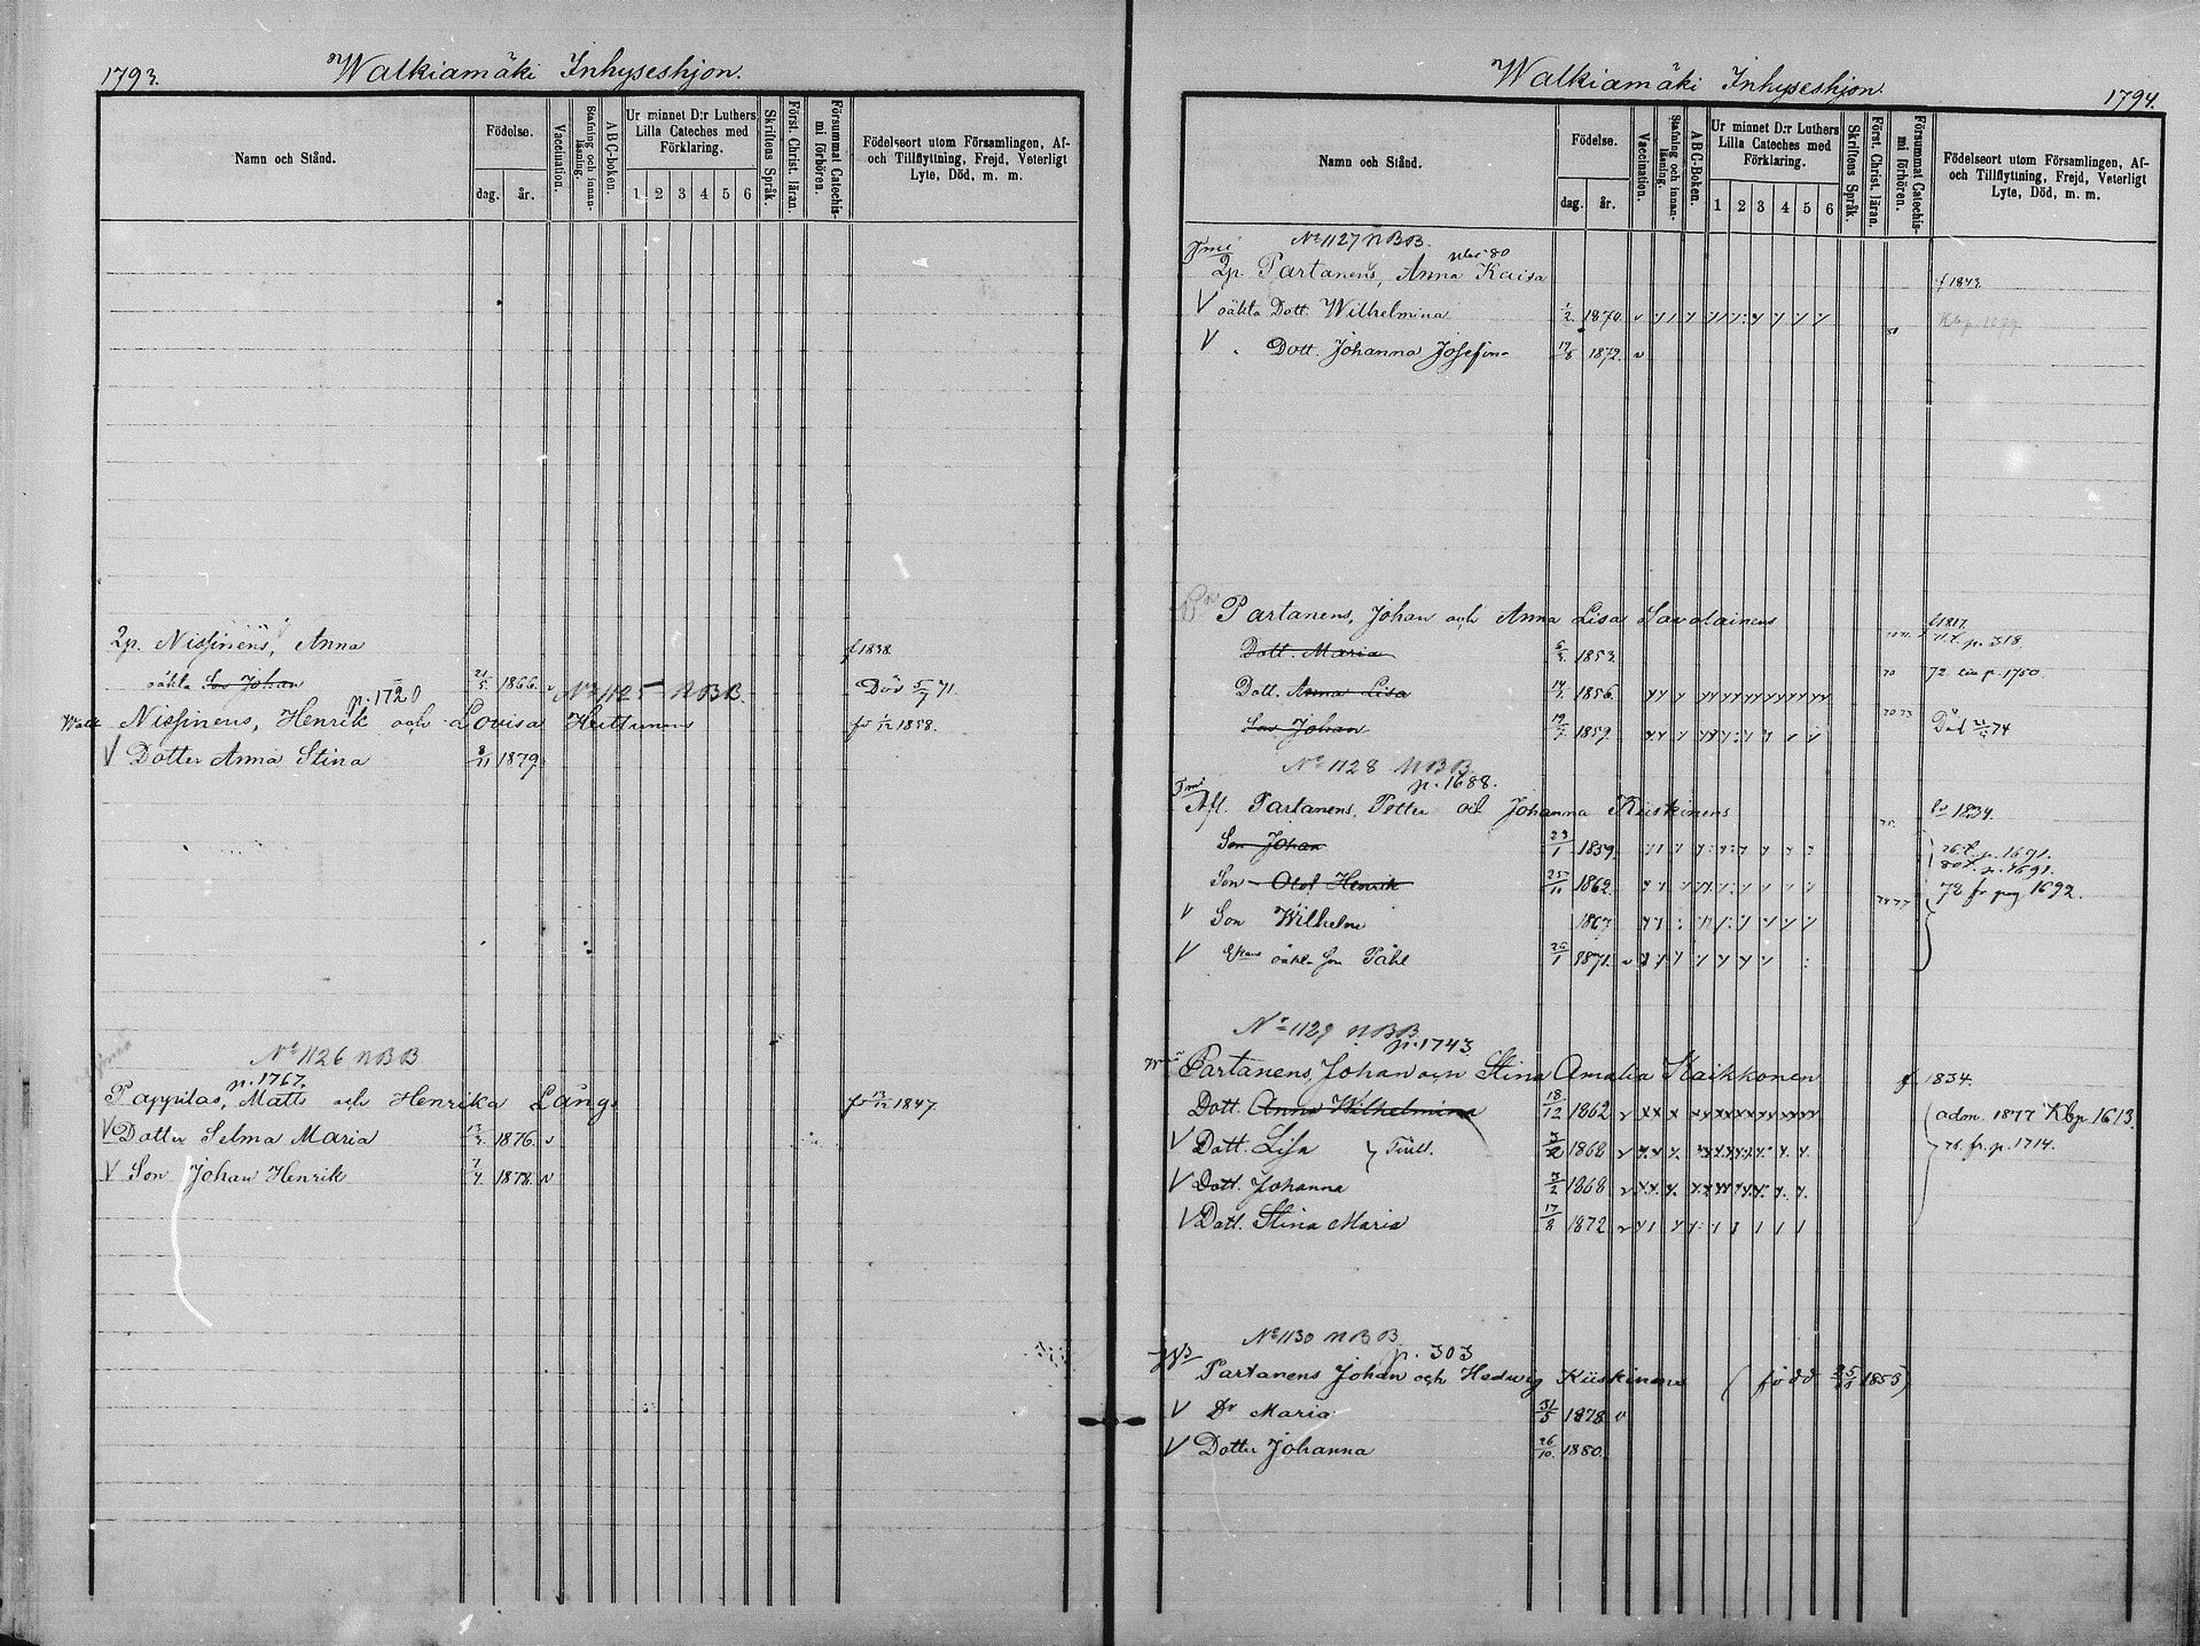 1793.
Walkiamäki Inhyseshjon.
Namn och Stånd.
Födelse.
dag.
år.
Vaccination.
Stafning och innan-läsning.
ABC-boken.
Ur minnet D:r Luthers Lilla Cateches med Förklaring.
1 2 3 4 5 6
Skriftens Språk.
Först. Christ. läran.
Försummat Catechis-mi förhören.
Födelseort utom Församlingen, Af- och Tillflyttning, Frejd, Veterligt Lyte, Död, m. m.
Qp. Nissinens, Anna f 1838.
oäkta Son Johan 21/5 1866. v Död 5/7 71.
p. 1720 No 1125 NBB.
Nissinens, Henrik och Lovisa Huttunens 1/12 1858.
V Dotter Anna Stina 8/11 1879.
No 1126 NBB
p. 1767.
Pappilas, Matts och Henrika Långs 1847.
V Dotter Selma Maria 1876. v
V Son Johan Henrik 7/4 1878. v
Walkiamäki Inhyseshjon.
1794.
Namn och Stånd.
Födelse.
dag.
år.
Vaccination.
Stafning och innan-läsning.
ABC-Boken.
Ur minnet D:r Luthers Lilla Cateches med Förklaring.
1 2 3 4 5 6
Skriftens Språk.
Först. Christ. läran.
Försummat Catechis-mi förhören.
Födelseort utom Församlingen, Af- och Tillflyttning, Frejd, Veterligt Lyte, Död, m. m.
No 1127 NBB.
Qp. Partanens, Anna Kaisa f 1843.
V oäkta Dott. Wilhelmina 1/2 1870. v
V Dott. Johanna Josefina 17/8 1872. v
Partanens, Johan och Anna Lisa Savolainens 1817.
p. 318.
Dott. Maria 1853.
Dott. Anna Lisa 1856. 70 72. p. 1750.
Son Johan 19/7 1859. 70 73 Död 74
No 1128 NBB.
p. 1688.
Afl. Partanens, Petter och Johanna Kiiskinens 1834.
Son Johan 23/1 1859. p. 1691.
80 p. 1691.
Son Olof Henrik 25/11 1862. 72 fr pag 1692.
V Son Wilhelm 1867
V oäkta Son Påhl 25/1 1871. v
No 1129 NBB
p. 1743.
Partanens, Johan och Stina Amalia Kaikkonen f 1834.
Dott. Anna Wilhelmina 18/12 1862 v adm. 1877 Kbp 1613.
V Dott. Lisa } Tvill. 3/2 1868 v fr. p. 1714.
V Dott. Johanna 3/2 1868 v
V Dott. Stina Maria 17/8 1872 v
No 1130 NBB
p. 303
Partanens Johan och Hedwig Kiiskinens (född 1853)
V Dr Maria 31/5 1878 v
V Dotter Johanna 26/10 1880.